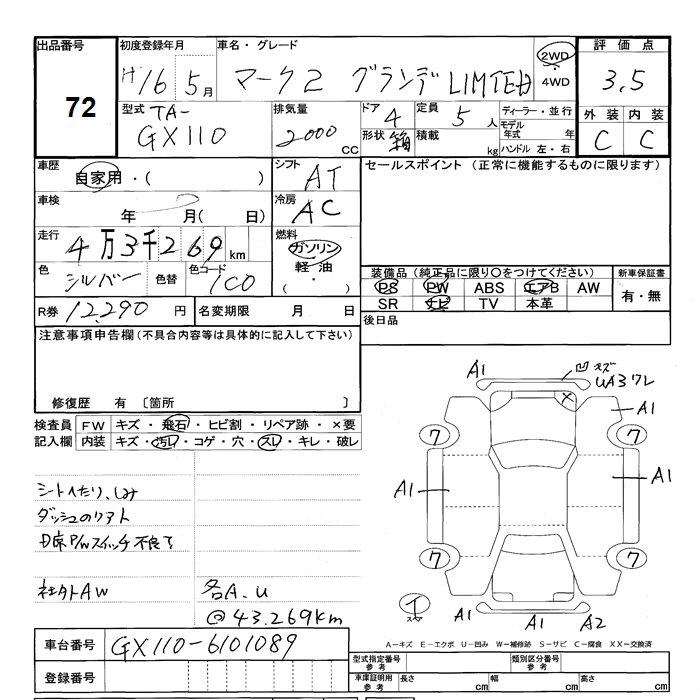 出品番号 初度登録年月 車名・グレード 2WD 評価点
72 H16 5月 マーク2 グランデ LIMTED ・ 4WD 3.5
型式 TA- 排気量 ドア 4 定員 5人 ディーラー・並行 外装 内装
GX110 2000 CC 形状 箱 積載 kg モデル年式 年 C C
ハンドル 左・右
車歴 自家用・( ) シフト AT セールスポイント (正常に機能するものに限ります)
車検 年 月( 日) 冷房 AC
走行 4万3千269 km 燃料 ガソリン
軽油
( ・ )
色 シルバー 色替 色コード 1C0 装備品 (純正品に限り○をつけてください) 新車保証書
PS PW ABS エアB AW 有・無
R券 12,290 円 名変期限 月 日 SR ナビ TV 本革
注意事項申告欄 (不具合内容等は具体的に記入して下さい) 後日品
修復歴 有 〔箇所 〕
検査員 FW キズ・飛石・ヒビ割・リペア跡・×要
記入欄 内装 キズ・汚レ・コゲ・穴・スレ・キレ・破レ
シートへたり、しみ
ダッシュのリアト
D席P/Wスイッチ不良
社外AW 各A.U
@43.269km
A1 凹 キズ
UA3ワレ
A1
7 7
A1 A1
7 7
イ
A1 A1 A2
A-キズ E-エクボ U-凹み W-補修跡 S-サビ C-腐食 XX-交換済
車台番号 GX110-6101089
型式指定番号 参考 類別区分番号 参考
登録番号 車庫証明用 参考 長さ cm 幅 cm 高さ cm